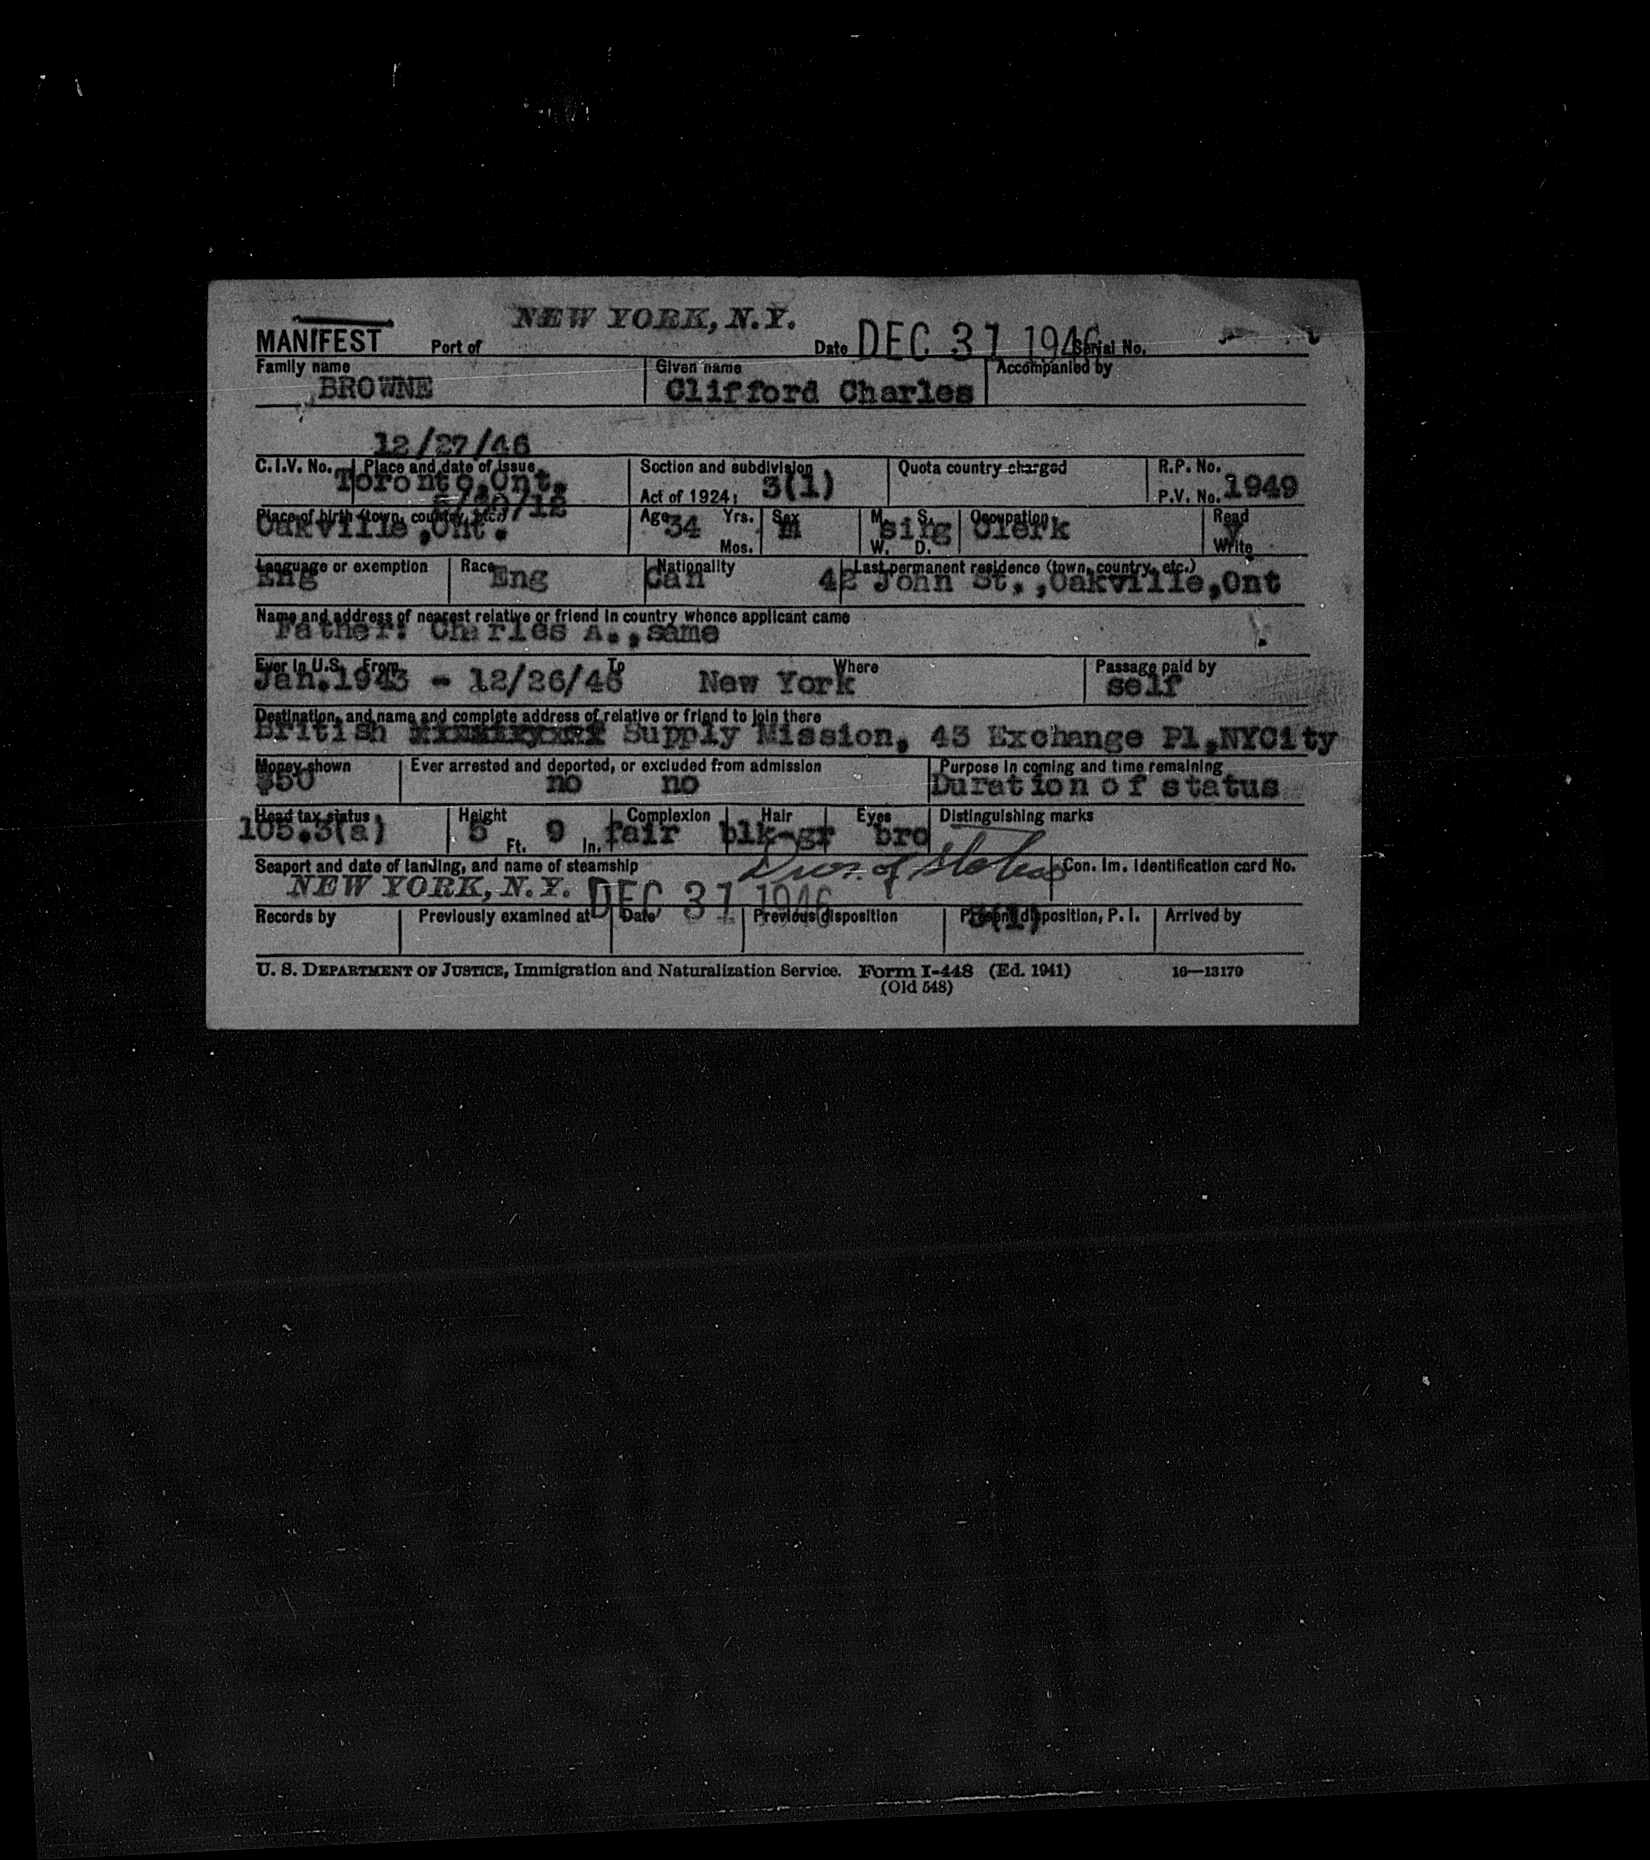 NEW YORK, N.Y.
MANIFEST Port of Date DEC 31 1946 Serial No.
Family name Given name Accompanied by
BROWNE Clifford Charles
12/27/46
C.I.V. No. Place and date of issue Section and subdivision Quota country charged R.P. No.
Toronto,Ont. Act of 1924: 3(1) P.V. No. 1949
Place of birth (town, country, etc.) Age 34 Yrs. Sex M. S. Occupation Read
Oakville,Ont. Mos. M W. D. sing Clerk Y Write
Language or exemption Race Nationality Last permanent residence (town, country, etc.)
Eng Eng Can 42 John St.,Oakville,Ont
Name and address of nearest relative or friend in country whence applicant came
Father: Charles A.,same
Ever in U.S. From To Where Passage paid by
Jan.1943 - 12/26/46 New York self
Destination, and name and complete address of relative or friend to join there
British Supply Mission, 43 Exchange Pl,NYCity
Money shown Ever arrested and deported, or excluded from admission Purpose in coming and time remaining
$50 no no Duration of status
Head tax status Height Complexion Hair Eyes Distinguishing marks
105.3(a) 5 Ft. 9 In. fair blk-gr bro
Seaport and date of landing, and name of steamship Dur. of status Con. Im. Identification card No.
NEW YORK, N.Y. DEC 31 1946
Records by Previously examined at Date Previous disposition Present disposition, P. I. Arrived by
3(1)
U. S. DEPARTMENT OF JUSTICE, Immigration and Naturalization Service. Form I-448 (Ed. 1941) 16—13170
(Old 548)